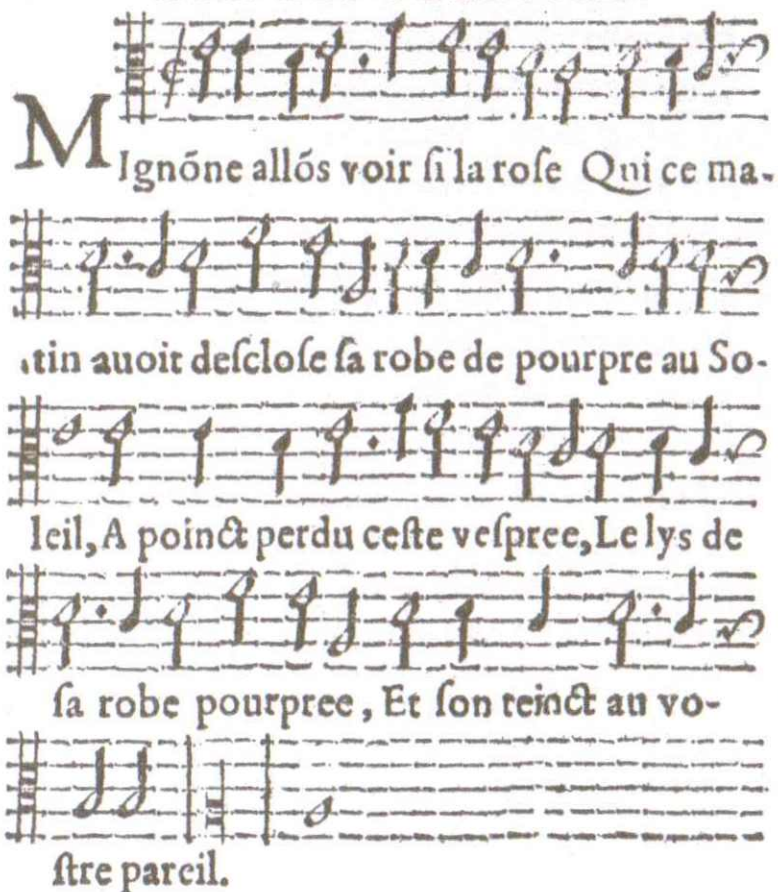 MIgnõne allõs voir ſi la roſe Qui ce ma-
tin auoit deſcloſe ſa robe de pourpre au So-
leil, A poinct perdu ceſte veſpree, Le lys de
ſa robe pourpree, Et ſon teinct au vo-
ſtre pareil.